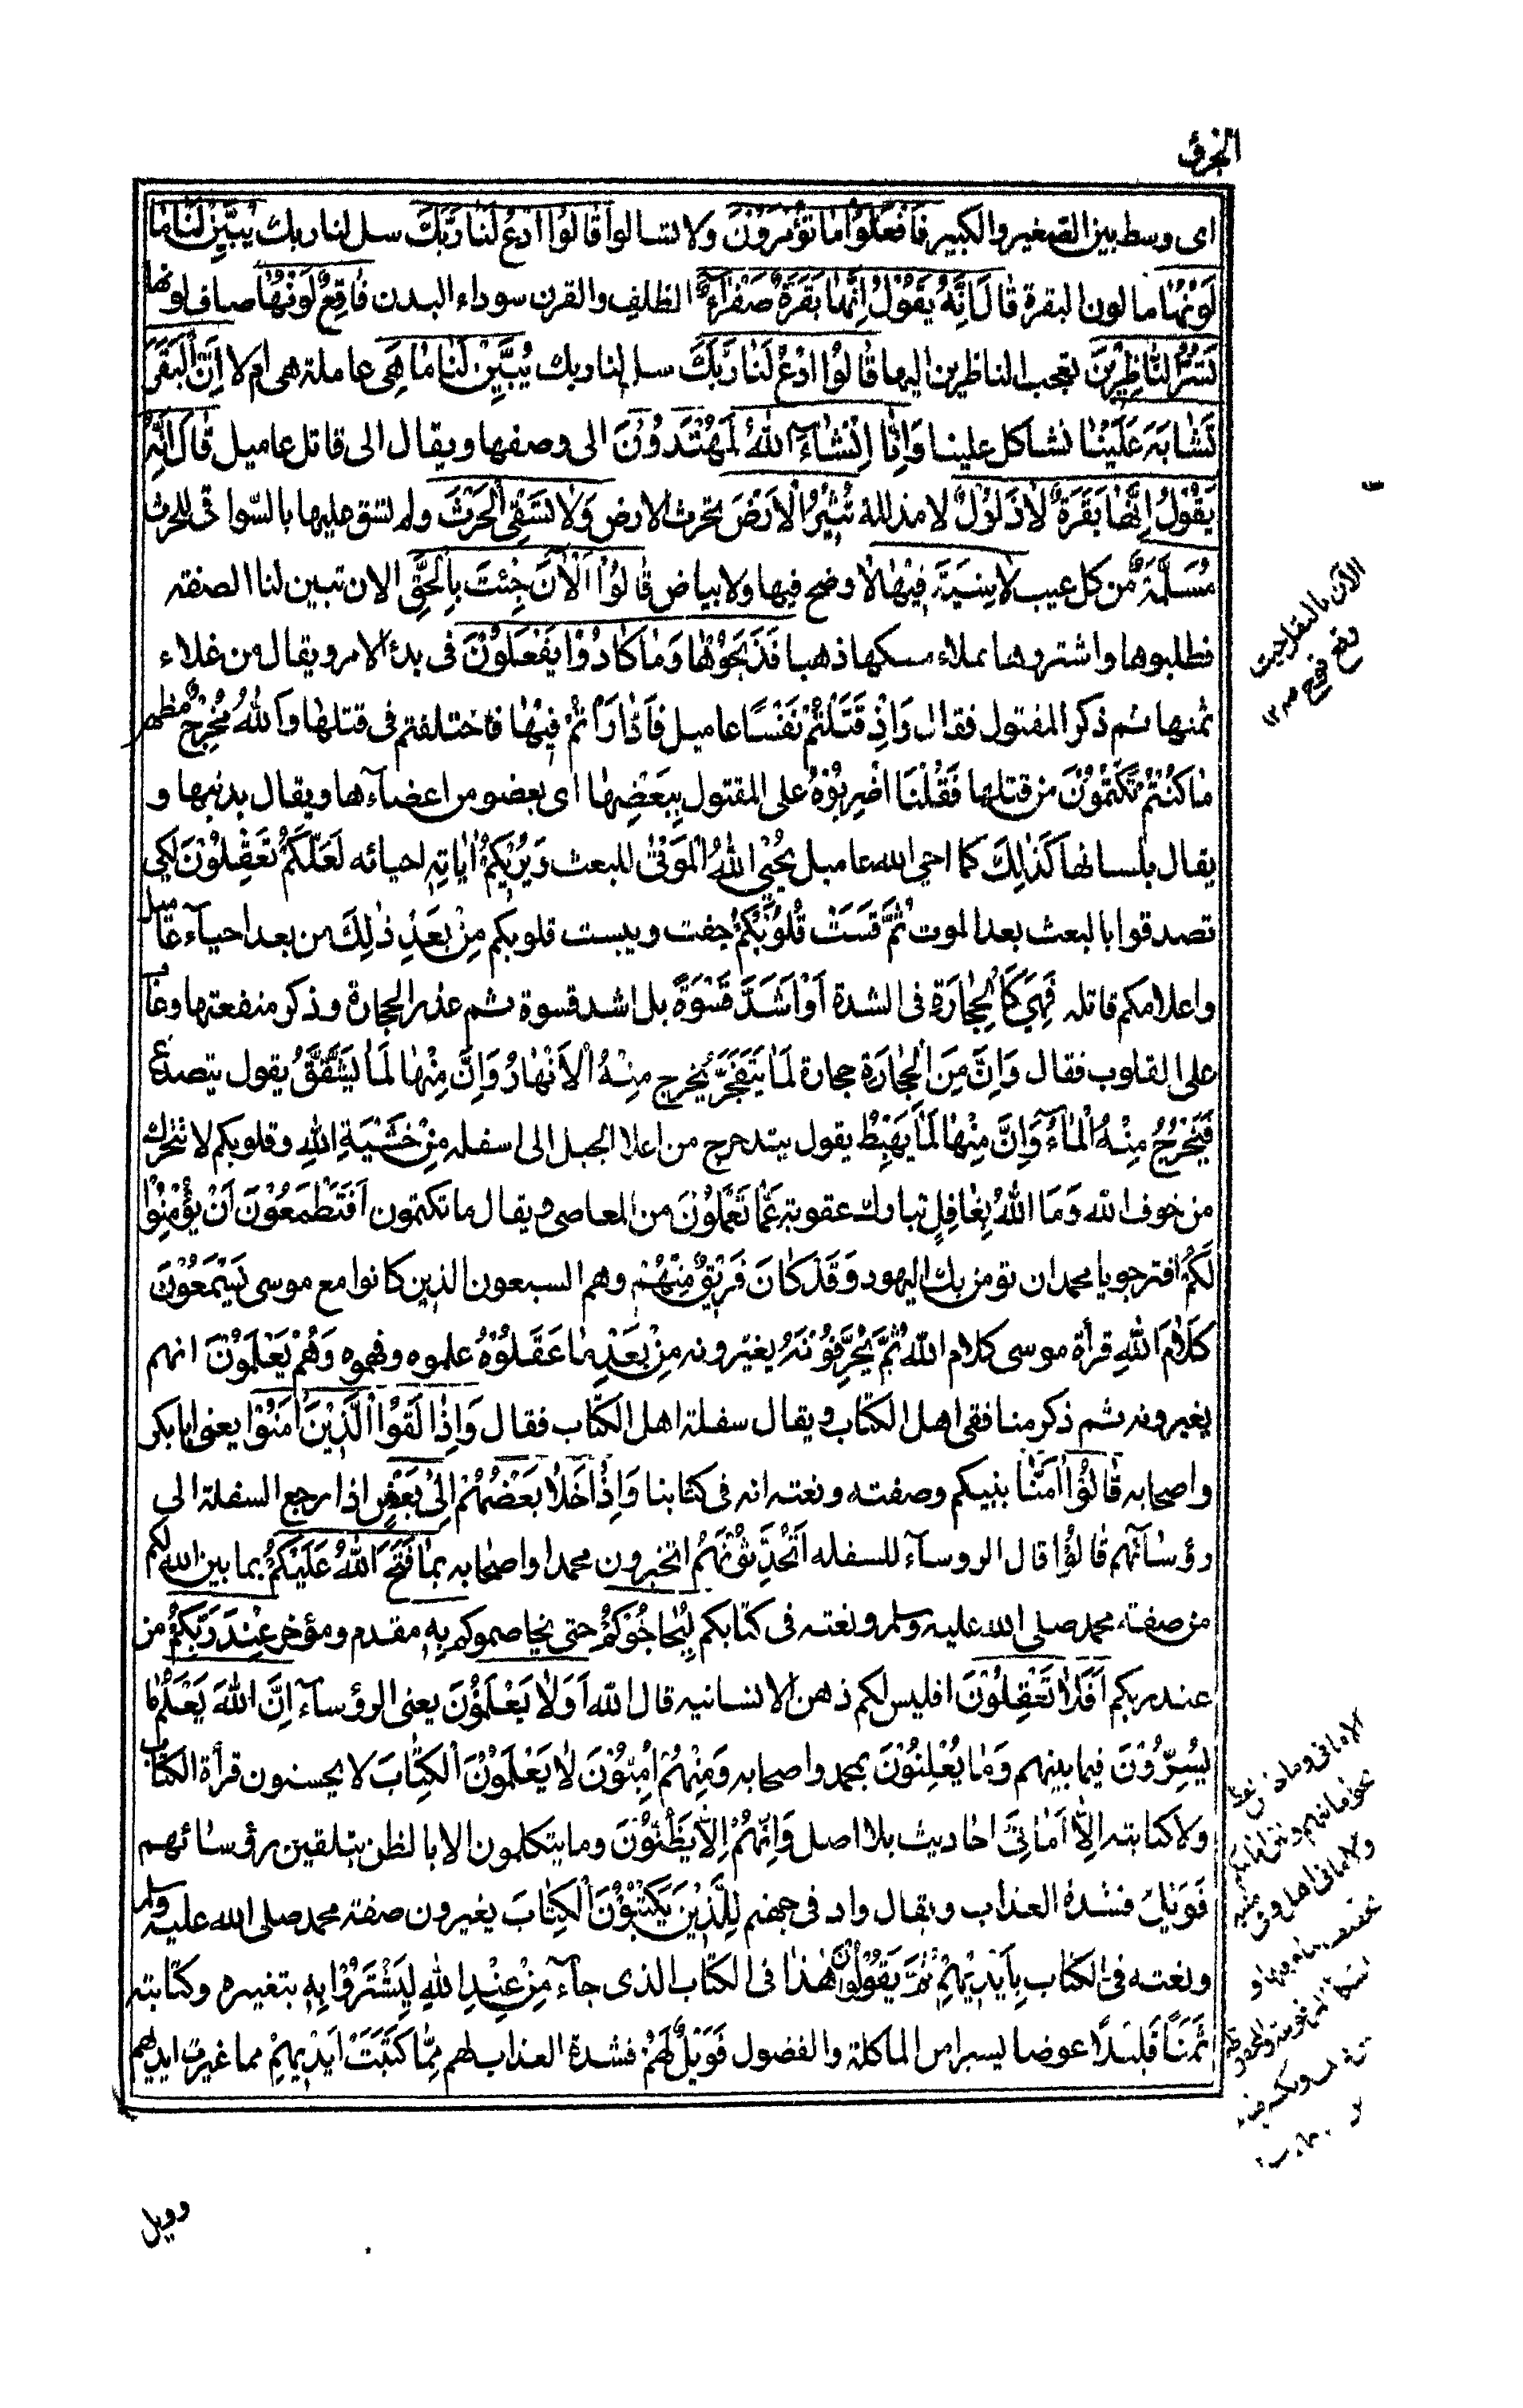 الجزء
اى وسط بين الصغير والكبير فَافْعَلُوْا مَا تُؤْمَرُوْنَ ولا تسالوا قَالُوا ادْعُ لَنَا رَبَّكَ سل لنا ربك يُبَيِّنْ لَنَا مَا
لَوْنُهَا ما لون البقرة قَالَ اِنَّهُ يَقُوْلُ اِنَّهَا بَقَرَةٌ صَفْرَآءُ الظلف والقرن سوداء البدن فَاقِعٌ لَوْنُهَا صاف لونها
تَسُرُّ النَّاظِرِيْنَ تعجب الناظرين اليها قَالُوا ادْعُ لَنَا رَبَّكَ سل لنا ربك يُبَيِّنْ لَنَا مَا هِىَ عاملة هى ام لا اِنَّ الْبَقَرَ
تَشَابَهَ عَلَيْنَا تشاكل علينا وَاِنَّا اِنْشَآءَ اللّٰهُ لَمُهْتَدُوْنَ الى وصفها ويقال الى قاتل عاميل قَالَ اِنَّهُ
يَقُوْلُ اِنَّهَا بَقَرَةٌ لَا ذَلُوْلٌ لا مذللة تُثِيْرُ الْاَرْضَ تحرث الارض وَلَا تَسْقِى الْحَرْثَ ولم تسق عليها بالسّواقى للحرث
مُسَلَّمَةٌ من كل عيب لَا شِيَةَ فِيْهَا لا وضح فيها ولا بياض قَالُوْا الْاٰنَ جِئْتَ بِالْحَقِّ الان تبين لنا الصفة
فطلبوها واشتروها بملاء مسكها ذهبا فَذَبَحُوْهَا وَمَا كَادُوْا يَفْعَلُوْنَ فى بدء الامر ويقال من غلاء
ثمنها ثم ذكر المقتول فقال وَاِذْ قَتَلْتُمْ نَفْسًا عاميل فَادَّارَاْتُمْ فِيْهَا فاختلفتم فى قتلها وَاللّٰهُ مُخْرِجٌ مظهر
مَا كُنْتُمْ تَكْتُمُوْنَ من قتلها فَقُلْنَا اضْرِبُوْهُ على المقتول بِبَعْضِهَا اى بعضو من اعضآءها ويقال بذنبها و
يقال بلسانها كَذٰلِكَ كما احيى الله عاميل يُحْيِى اللّٰهُ الْمَوْتٰى للبعث وَيُرِيْكُمْ اٰيَاتِهٖ احيائه لَعَلَّكُمْ تَعْقِلُوْنَ لكى
تصدقوا بالبعث بعد الموت ثُمَّ قَسَتْ قُلُوْبُكُمْ جفت ويبست قلوبكم مِنْ بَعْدِ ذٰلِكَ من بعد احيآء عاميل
واعلامكم قاتله فَهِىَ كَالْحِجَارَةِ فى الشدة اَوْ اَشَدُّ قَسْوَةً بل اشد قسوة ثم عذر الحجارة وذكر منفعتها وعاب
على القلوب فقال وَاِنَّ مِنَ الْحِجَارَةِ حجارة لَمَا يَتَفَجَّرُ يخرج مِنْهُ الْاَنْهَارُ وَاِنَّ مِنْهَا لَمَا يَشَّقَّقُ يقول يتصدع
فَيَخْرُجُ مِنْهُ الْمَآءُ وَاِنَّ مِنْهَا لَمَا يَهْبِطُ يقول يتدحرج من اعلا الجبل الى اسفله مِنْ خَشْيَةِ اللّٰهِ وقلوبكم لا تتحرك
من خوف الله وَمَا اللّٰهُ بِغَافِلٍ بتارك عقوبة عَمَّا تَعْمَلُوْنَ من المعاصى ويقال ما تكتمون اَفَتَطْمَعُوْنَ اَنْ يُؤْمِنُوْا
لَكُمْ افترجو يا محمد ان تؤمن بك اليهود وَقَدْ كَانَ فَرِيْقٌ مِنْهُمْ وهم السبعون الذين كانوا مع موسى يَسْمَعُوْنَ
كَلَامَ اللّٰهِ قرأة موسى كلام الله ثُمَّ يُحَرِّفُوْنَهُ يغيرونه مِنْ بَعْدِ مَا عَقَلُوْهُ علموه وفهموه وَهُمْ يَعْلَمُوْنَ انهم
يغيرونه ثم ذكر منافقى اهل الكتاب ويقال سفلة اهل الكتاب فقال وَاِذَا لَقُوا الَّذِيْنَ اٰمَنُوْا يعنى ابا بكر
واصحابه قَالُوْا اٰمَنَّا بنبيكم وصفته ونعته انه فى كتابنا وَاِذَا خَلَا بَعْضُهُمْ اِلٰى بَعْضٍ اذا رجع السفلة الى
رؤسآئهم قَالُوْا قال الروسآء للسفله اَتُحَدِّثُوْنَهُمْ اتخبرون محمدا واصحابه بِمَا فَتَحَ اللّٰهُ عَلَيْكُمْ بما بين الله لكم
من صفة محمد صلى الله عليه وسلم ونعته فى كتابكم لِيُحَاجُّوْكُمْ حتى يخاصموكم بِهٖ مقدم ومؤخر عِنْدَ رَبِّكُمْ من
عند ربكم اَفَلَا تَعْقِلُوْنَ افليس لكم ذهن الانسانيه قال الله اَوَلَا يَعْلَمُوْنَ يعنى الرؤسآء اِنَّ اللّٰهَ يَعْلَمُ مَا
يُسِرُّوْنَ فيما بينهم وَمَا يُعْلِنُوْنَ بمحمد واصحابه وَمِنْهُمْ اُمِّيُّوْنَ لَا يَعْلَمُوْنَ الْكِتَابَ لا يحسنون قرأة الكتاب
ولا كتابته اِلَّا اَمَانِىَّ احاديث بلا اصل وَاِنْهُمْ اِلَّا يَظُنُّوْنَ وما يتكلمون الا بالظن بتلقين رؤسائهم
فَوَيْلٌ فشدة العذاب ويقال واد فى جهنم لِلَّذِيْنَ يَكْتُبُوْنَ الْكِتَابَ يغيرون صفة محمد صلى الله عليه وسلم
ونعته فى الكتاب بِاَيْدِيْهِمْ ثُمَّ يَقُوْلُوْنَ هٰذَا فى الكتاب الذى جآء مِنْ عِنْدِ اللّٰهِ لِيَشْتَرُوْا بِهٖ بتغيره وكتابته
ثَمَنًا قَلِيْلًا عوضا يسيرا من الماكلة والفضول فَوَيْلٌ لَهُمْ فشدة العذاب لهم مِمَّا كَتَبَتْ اَيْدِيْهِمْ مما غيرت ايديهم
وويل